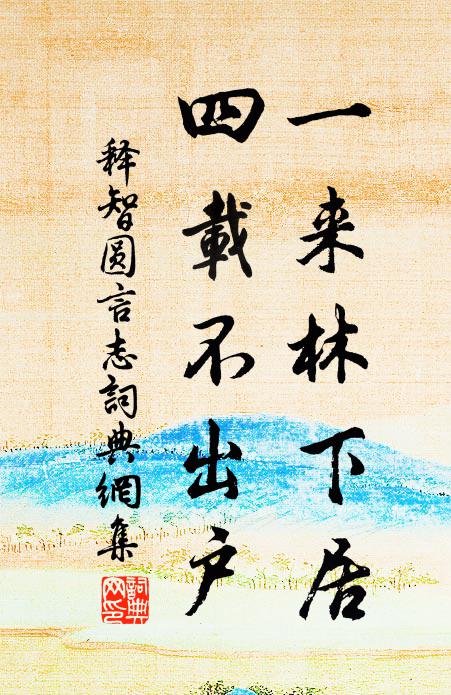 一来林下居
四載不出户
释智圆言志詞典網集